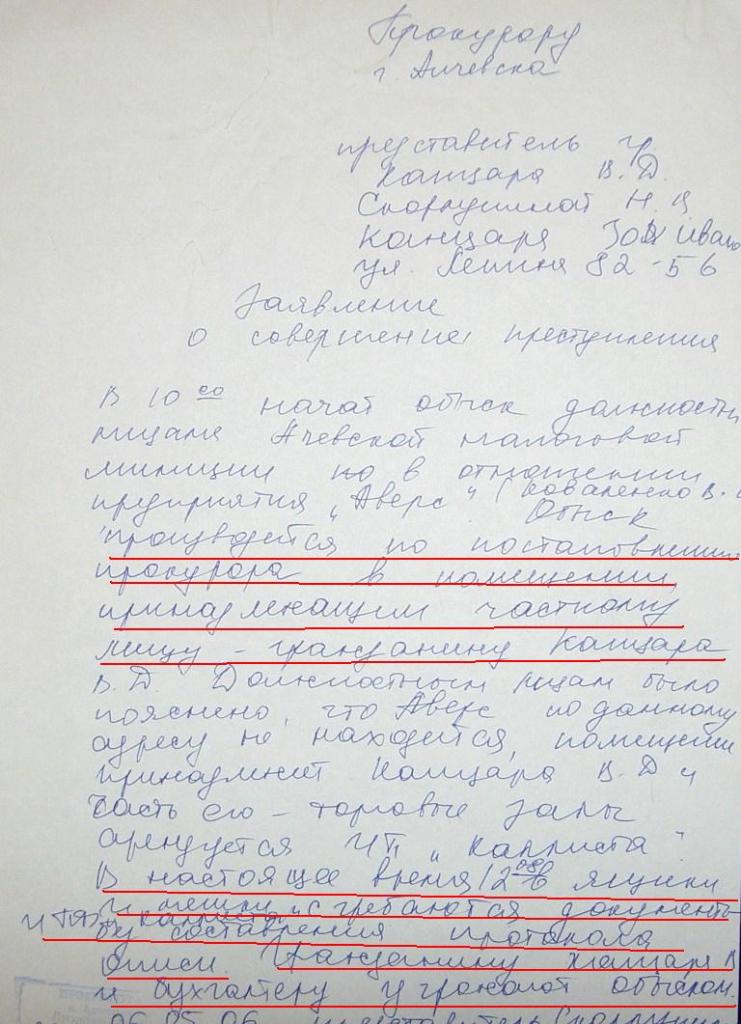 Прокурору
г. Алчевска
представитель гр.
Канцара В.Д.
Скорпушмат Н.
Канцаря
ул. Ленина 82-56
Заявление
о совершение преступления
В 10 00 начат обыск должностн
лицами Ачевской налоговой
милиции но в отношении
предприятия "Аверс" (Коваленко В.
Обыск
производется по постановлению
прокурора в помещении,
принадлежащим частному
лицу - гражданину Канцара
В.Д. Должностным лицам было
пояснено, что Аверс по данному
адресу не находется, помещение
принадлежит Канцара В.Д и
часть его - торговые залы
арендуется ЧП "Каллиста"
В настоящее время 12 в ящики
и мешки сгребаются документы
ЧП "Каллиста"
без составления протокола
описи. Гражданину Канцаре В
и бухгалтеру угрожают обыском.
06.05.06 представитель